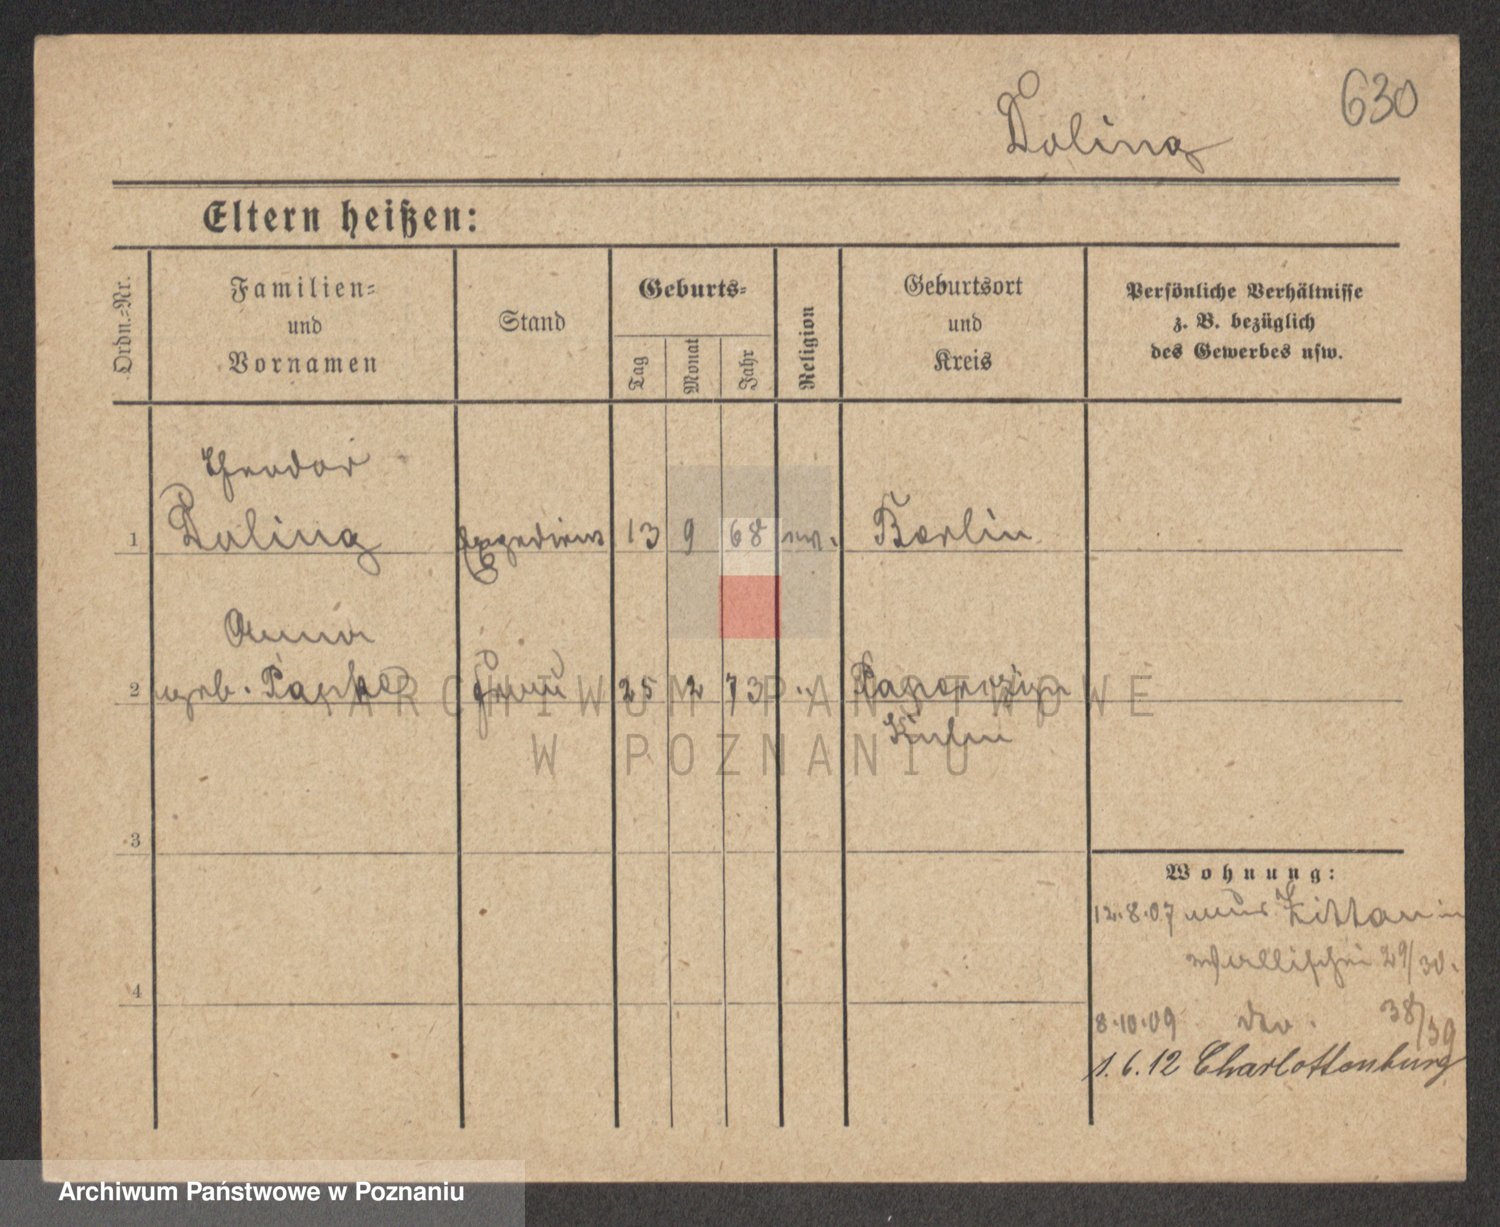 630
Doling
Eltern heißen:
Ordn.-Nr.
Familien-
und
Vornamen
Stand
Geburts-
Tag
Monat
Jahr
Religion
Geburtsort
und
Kreis
Persönliche Verhältnisse
z. B. bezüglich
des Gewerbes usw.
Theodor
1 Doling Expedient 13 9 68 ev. Berlin
Anna
2 geb. Frau 25 2 73 "
Kulm
3
4
Wohnung:
12.8.07 aus Zittau in
Wallischei 29/30.
8.10.09 dto. 38/39
1.6.12 Charlottenburg
ARCHIWUM PAŃSTWOWE
W POZNANIU
Archiwum Państwowe w Poznaniu